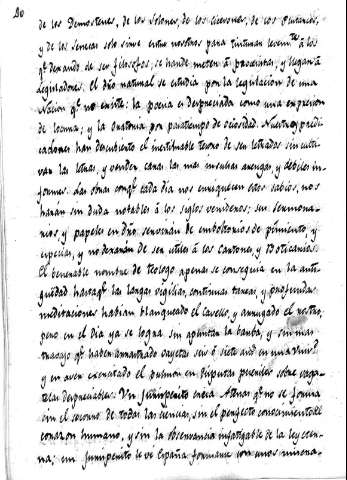 20
de los Demostenes, de los Solones, de los Cicerones, de los
y de los Senecas solo sirve entre nosotros para tinturar levem.te á los
q.e dexando de ser filosofos, se han de meter á y llegan á
Legisladores. El dro natural se estudia por la legislacion de una
Nacion q.e no existe; la poesia es despreciada como una expresion
de locura; y la oratoria por pasatiempo de ociosidad. Nuestros predi
cadores han descubierto el inestimable tesoro de ser letrados sin culti
var las letras, y venden caras las mas insulsas arengas, y debiles in-
formes. Las obras con q.e cada dia nos enriquecen estos sabios, nos
haran sin duda notables á los siglos venideros; sus sermona-
rios y papeles en dro. serviran de emboltorios de pimiento, y
especias, y no dexarán de ser utiles á los Cartones, y Boticarios.
El benerable nombre de teologo apenas se conseguia en la anti-
guedad hasta q.e las largas vigilias, continuas tareas, y profundas
meditaciones habian blanqueado el cavello, y arrugado el rostro;
pero en el dia ya se logra sin apuntar la barba, y sin mas
trabajo q.e haber arrastrado vayetas seis ó siete años en una Univ.d
y en aver exercitado el pulmon en disputas pueriles sobre vaga-
telas despreciables. Un Jurisperito creia Atenas q.e no se formaba
sin el socorro de todas las ciencias, sin el perfecto conocimiento del
corazon humano, y sin la observancia infatigable de la ley eter-
na; un Jurisperito se ve España formarse con unos misera-